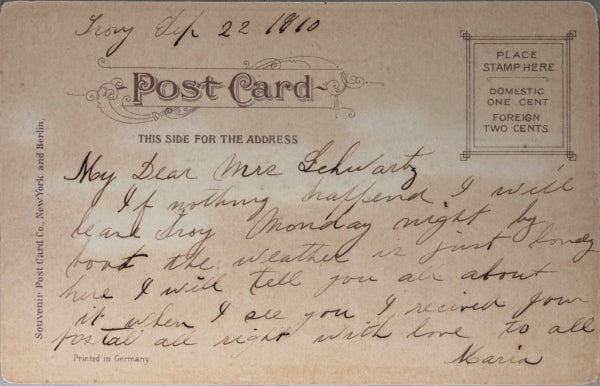 Troy Sep 22 1910
Post Card
PLACE
STAMP HERE
DOMESTIC
ONE CENT
FOREIGN
TWO CENTS
THIS SIDE FOR THE ADDRESS
Souvenir Post Card Co., New York and Berlin.
My Dear Mrs Schwartz
If nothing haffend I will
leave Troy Monday night by
boat the weather is just lovely
here I will tell you all about
it when I see you I recived your
postal all right with love to all
Maria
Printed in Germany.